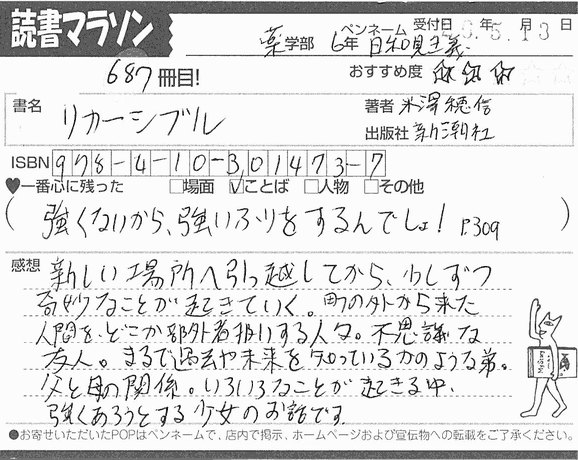 読書マラソン
薬学部 6年 ペンネーム 日和見主義 受付日 年5月13日
687冊目!
おすすめ度 ☆☆☆
書名 リカーシブル
著者 米澤穂信
出版社 新潮社
ISBN 978-4-10-301473-7
♥一番心に残った □場面 ☑ことば □人物 □その他
(強くないから、強いふりをするんでしょ! P309)
感想 新しい場所へ引っ越してから、少しずつ
奇妙なことが起きていく。町の外から来た
人間を、どこか部外者扱いする人々。不思議な
友人。まるで過去や未来を知っているかのような弟。
父と母の関係。いろいろなことが起きる中、
強くあろうとする少女のお話です。
Mystery
●お寄せいただいたPOPはペンネームで、店内で掲示、ホームページおよび宣伝物への転載をご了承ください。